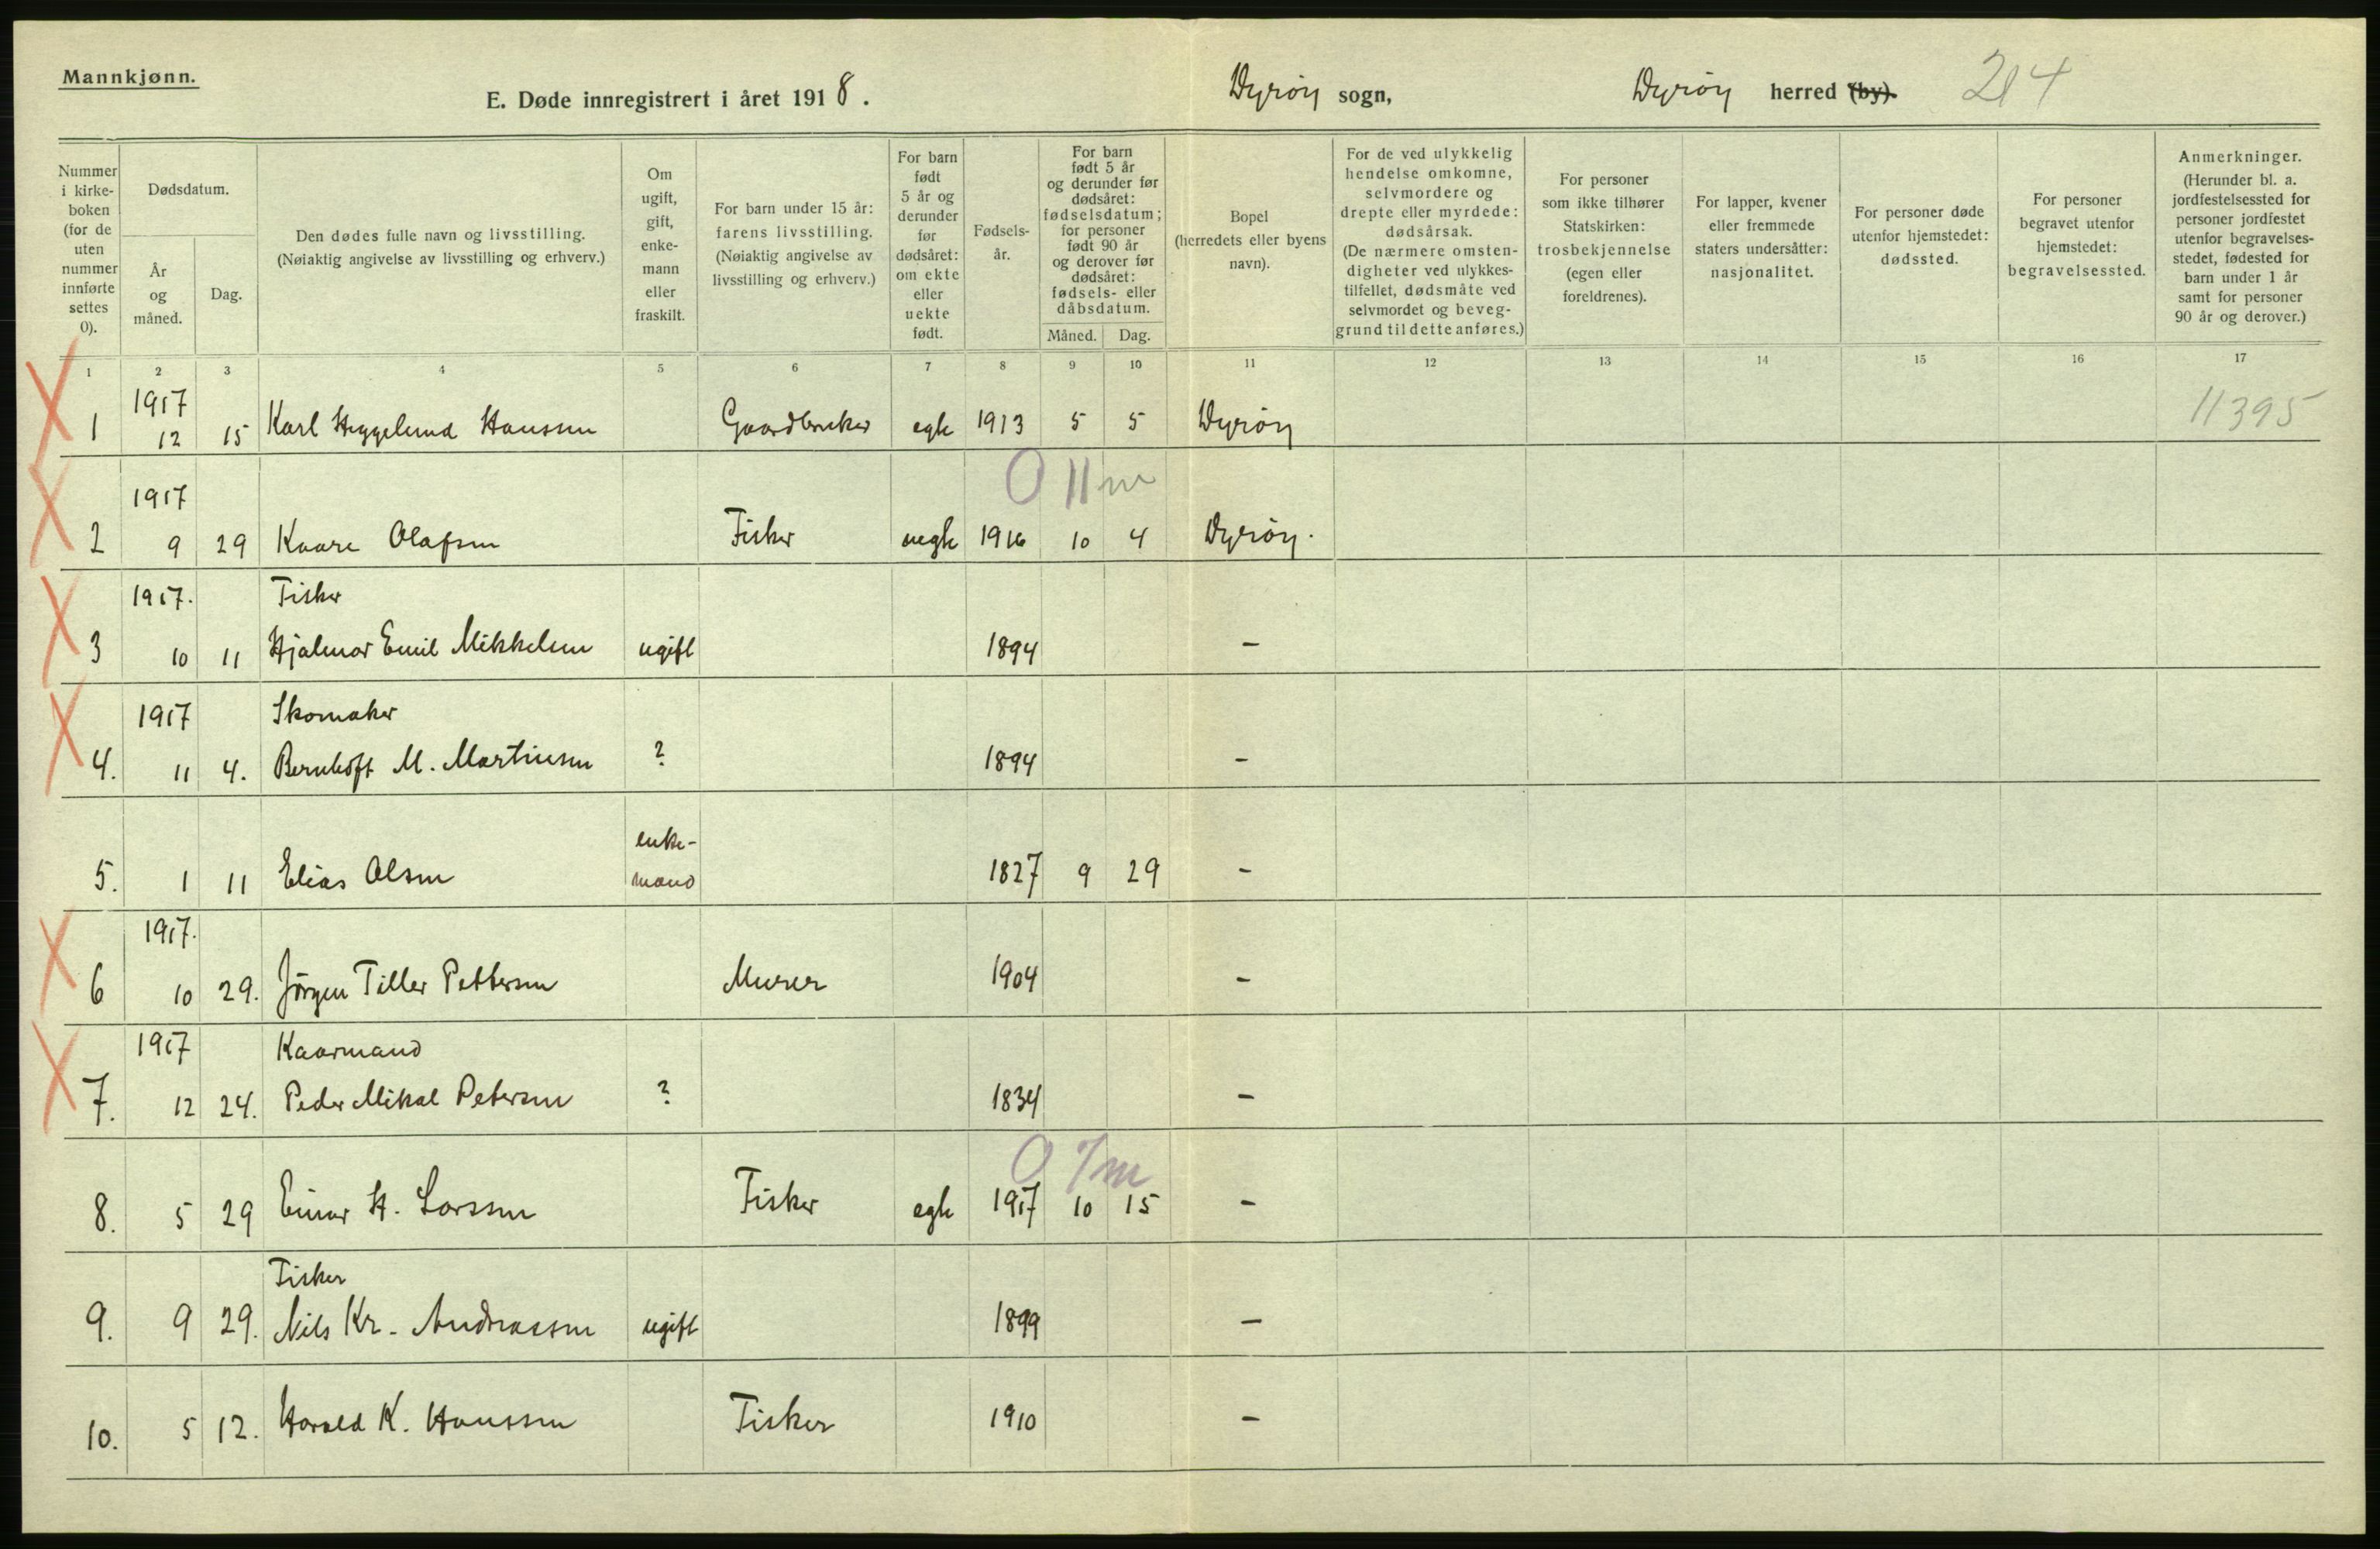 Mannkjønn.
E. Døde innregistrert i året 1918.
Dyrøy sogn,
Dyrøy herred (by).
214
Nummer i kirke-boken (for de uten nummer innførte settes 0).
Dødsdatum.
År og måned.
Dag.
Den dødes fulle navn og livsstilling.
(Nøiaktig angivelse av livsstilling og erhverv.)
Om ugift, gift, enke-mann eller fraskilt.
For barn under 15 år: farens livsstilling.
(Nøiaktig angivelse av livsstilling og erhverv.)
For barn født 5 år og derunder før dødsåret: om ekte eller uekte født.
Fødsels-år.
For barn født 5 år og derunder før dødsåret: fødselsdatum; for personer født 90 år og derover før dødsåret: fødsels- eller dåbsdatum.
Måned.
Dag.
Bopel
(herredets eller byens navn).
For de ved ulykkelig hendelse omkomne, selvmordere og drepte eller myrdede: dødsårsak.
(De nærmere omsten-digheter ved ulykkes-tilfellet, dødsmåte ved selvmordet og beveg-grund til dette anføres.)
For personer som ikke tilhører Statskirken: trosbekjennelse (egen eller foreldrenes).
For lapper, kvener eller fremmede staters undersåtter: nasjonalitet.
For personer døde utenfor hjemstedet: dødssted.
For personer begravet utenfor hjemstedet: begravelsessted.
Anmerkninger.
(Herunder bl. a. jordfestelsessted for personer jordfestet utenfor begravelses-stedet, fødested for barn under 1 år samt for personer 90 år og derover.)
1 2 3 4 5 6 7 8 9 10 11 12 13 14 15 16 17
1917
1 12 15 Karl Heggelund Hanssen Gaardbruker egte 1913 5 5 Dyrøy 11395
0 11 m
1917
2 9 29 Kaare Olafsen Fisker uegte 1916 10 4 Dyrøy.
1917. Fisker
3 10 11 Hjalmar Emil Mikkelsen ugift 1894 –
1917 Skomaker
4. 11 4. Bernhoft M. Martinsen ? 1894 –
enke-
5. 1 11 Elias Olsen mand 1827 9 29 –
1917.
6 10 29. Jörgen Tiller Pettersen Murer 1904 –
1917 Kaarmand
7. 12 24. Peder Mikal Petersen ? 1834 –
0 7 m
8. 5 29 Einar H. Larssen Fisker egte 1917 10 15 –
Fisker
9. 9 29. Nils Kr. Andreassen ugift 1899 –
10. 5 12. Harald K. Hanssen Fisker 1910 –